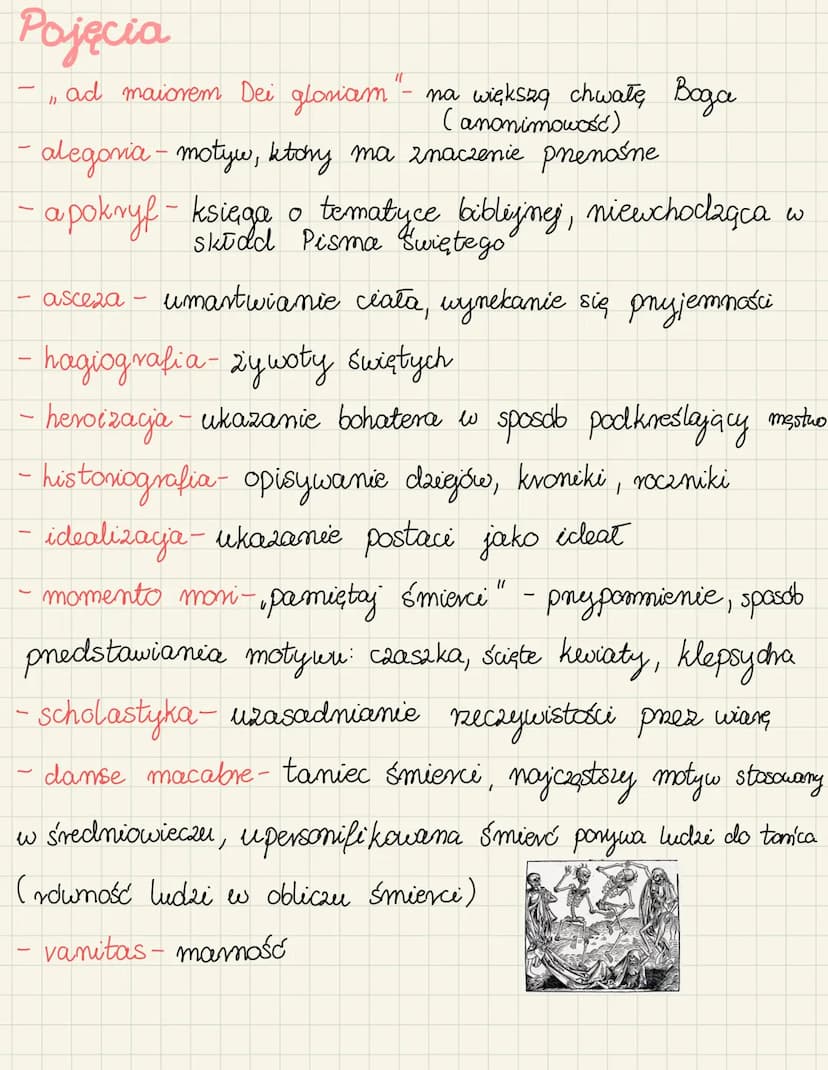 Pojęcia
- „ad maiorem Dei gloriam"- na większą chwałę Boga
(anonimowość)
- alegoria - motyw, który ma znaczenie przenośne
- apokryf - księga o tematyce biblijnej, niewchodząca w
skład Pisma Świętego
- asceza - umartwianie ciała, wyrzekanie się przyjemności
- hagiografia - żywoty świętych
- heroizacja - ukazanie bohatera w sposób podkreślający męstwo
- historiografia - opisywanie dziejów, kroniki, roczniki
- idealizacja - ukazanie postaci jako ideał
- momento mori - „pamiętaj śmierci" - przypomnienie, sposób
przedstawiania motywu: czaszka, ścięte kwiaty, klepsydra
- scholastyka - uzasadnianie rzeczywistości przez wiarę
- danse macabre - taniec śmierci, najczęstszy motyw stosowany
w średniowieczu, upersonifikowana śmierć porywa ludzi do tańca
(równość ludzi w obliczu śmierci)
- vanitas - marność